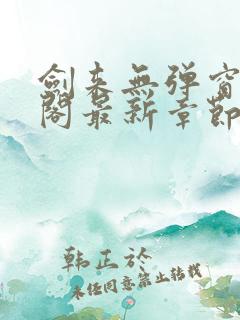 劍来無弹窗
閣最新章節
韩正於
未经同意禁止转载